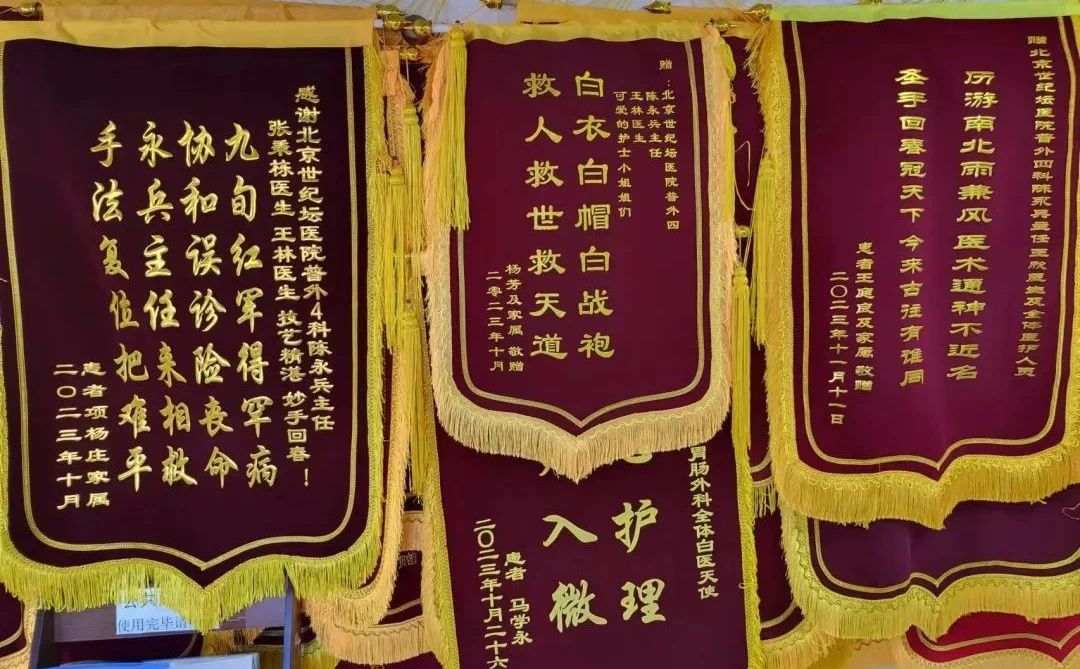 感谢北京世纪坛医院普外4科陈永兵主任
栋医生 王林医生 技艺精湛 妙手回春！
九旬红军得罕病
协和误诊险丧命
永兵主任来相救
手法复位把难平
患者项杨庄家属
二〇二三年十月
赠：北京世纪坛医院普外四
陈永兵主任
王林医生
可爱的护士小姐姐们
白衣白帽白战袍
救人救世救天道
杨芳及家属 敬赠
二零二三年十月
赠北京世纪坛医院普外四科陈永兵主任王欣医生及全体医护人员
历游南北雨兼风医术通神不近名
圣手回春冠天下今来古往有谁同
患者王庭及家属敬赠
二〇二三年十一月十一日
胃肠外科全体白医天使
护理
入微
患者 马学永
二〇二三年十月二十六
使用完毕请